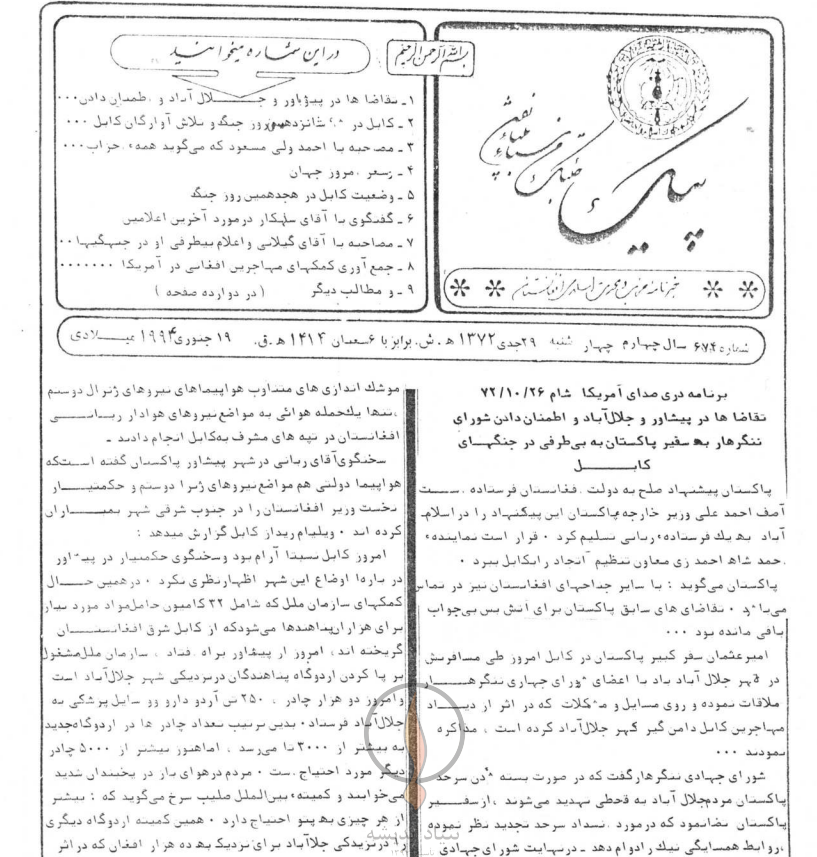 بسم الله الرحمن الرحیم
در این شماره میخوانید
۱ ـ تقاضا ها در پیشاور و جـلال آباد و اطمینان دادن۰۰۰
۲ ـ کابل در شانزدهمین روز جنگ و تلاش آوارگان کابل ۰۰۰
۳ ـ مصاحبه با احمد ولی مسعود که می‌گوید همهٔ احزاب۰۰۰
۴ ـ امروز جهان
۵ ـ وضعیت کابل در هجدهمین روز جنگ
۶ ـ گفتگوی با آقای سلیکار درمورد آخرین اعلامیه
۷ ـ مصاحبه با آقای گیلانی و اعلام بیطرفی او در جنگیها ۰۰
۸ ـ جمع آوری کمکهای مهاجرین افغانی در آمریکا ۰۰۰۰۰۰۰
۹ ـ و مطالب دیگر ( در دوازده صفحه )
پیک
خبرنامه
شماره ۶۷۴ سال چهارم چهار شنبه ۲۹جدی ۱۳۷۲ ه‍ .ش. برابر با ۶شعبان ۱۴۱۴ ه‍ .ق. ۱۹ جنوری ۱۹۹۴ میـلادی
برنامه دری صدای آمریکا شام ۷۲/۱۰/۲۶
تقاضا ها در پیشاور و جلال‌آباد و اطمنان دادن شورای
ننگرهار به سفیر پاکستان به بی‌طرفی در جنگهـای
کابـــل
پاکستان پیشنهاد صلح به دولت افغانستان فرستاده اسـت
آصف احمد علی وزیر خارجه پاکستان این پیشنهاد را در اسلام‌
آباد به یك فرستادهٔ ربانی تسلیم کرد ۰ قرار است نمایندهٔ
احمد شاه احمد زی معاون تنظیم اتحاد را بکابل ببرد ۰
پاکستان می‌گوید : با سایر جناحهای افغانستان نیز در تماس
می‌باشد ۰ تقاضای های سابق پاکستان برای آتش بس بی‌جواب
باقی مانده بود ۰۰۰
امیر عثمان سفر کبیر پاکستان در کابل امروز طی مسافرتش
در شهر جلال آباد با اعضای شورای جهاری ننگرهـار
ملاقات نموده و روی مسایل و مشکلات که در اثر ازدیـاد
مهاجرین کابل دامن گیر شهر جلال‌آباد کرده است ، مذاکره
نمودند ۰۰۰
شورای جهادی ننگرهار گفت که در صورت بسته شدن سرحد
پاکستان مردم جلال آباد به قحطی تهدید می‌شوند ،ازسفـیر
پاکستان تقاضا نمود که درمورد انسداد سرحد تجدید نظر نموده
،روابط همسایگی نیك را ادوام دهد ـ درنهایت شورای جهادی
موشك اندازی های متناوب هواپیماهای نیروهای ژنرال دوستم
،تنها یك حمله هوائی به مواضع نیروهای هوادار ربـانـی
افغانستان در تپه های مشرف به‌کابل انجام دادند ـ
سخنگوی آقای ربانی در شهر پیشاور پاکستان گفته اسـت که
هواپیما دولتی هم مواضع نیروهای ژنرا دوستم و حکمتیـار
نخست وزیر افغانستان را در جنوب شرقی شهر بمبـاران
کرده اند ۰ ویلیام ریداز کابل گزارش میدهد :
امروز کابل نسبتا آرام بود و سخنگوی حکمتیار در پیشاور
در بارهٔ اوضاع این شهر اظهارنظری نکرد ۰ درهمین حـال
کمکهای سازمان ملل که شامل ۳۲ کامیون حامل مواد مورد نیاز
برای هزاران پناهندها می‌شود که از کابل شرق افغانستـان
گریخته اند، امروز از پیشاور براه افتاد ، سازمان ملل مشغول
بر پا کردن اردوگاه پناهندگان در نزدیکی شهر جلال‌آباد است
وامروز دو هزار چادر ، ۲۵۰ تن آردو دارو وو سایل پزشکی به
جلال‌آباد فرستاد، بدین ترتیب تعداد چادر ها در اردوگاه جدید
به بیشتر از ۳۰۰۰ تا می‌رسد ، اماهنوز بیشتر از ۵۰۰۰ چادر
دیگر مورد احتیاج است ۰ مردم درهوای باز در یخبندان شدید
می‌خوابند و کمیتهٔ بین‌الملل صلیب سرخ می‌گوید که : بیشتر
از هر چیزی به پتو احتیاج دارد ۰ همین کمیته اردوگاه دیگری
را درنزیدکی جلاآباد برای نزدیک به ده هزار افغان که در اثر
بنیاد اندیشه